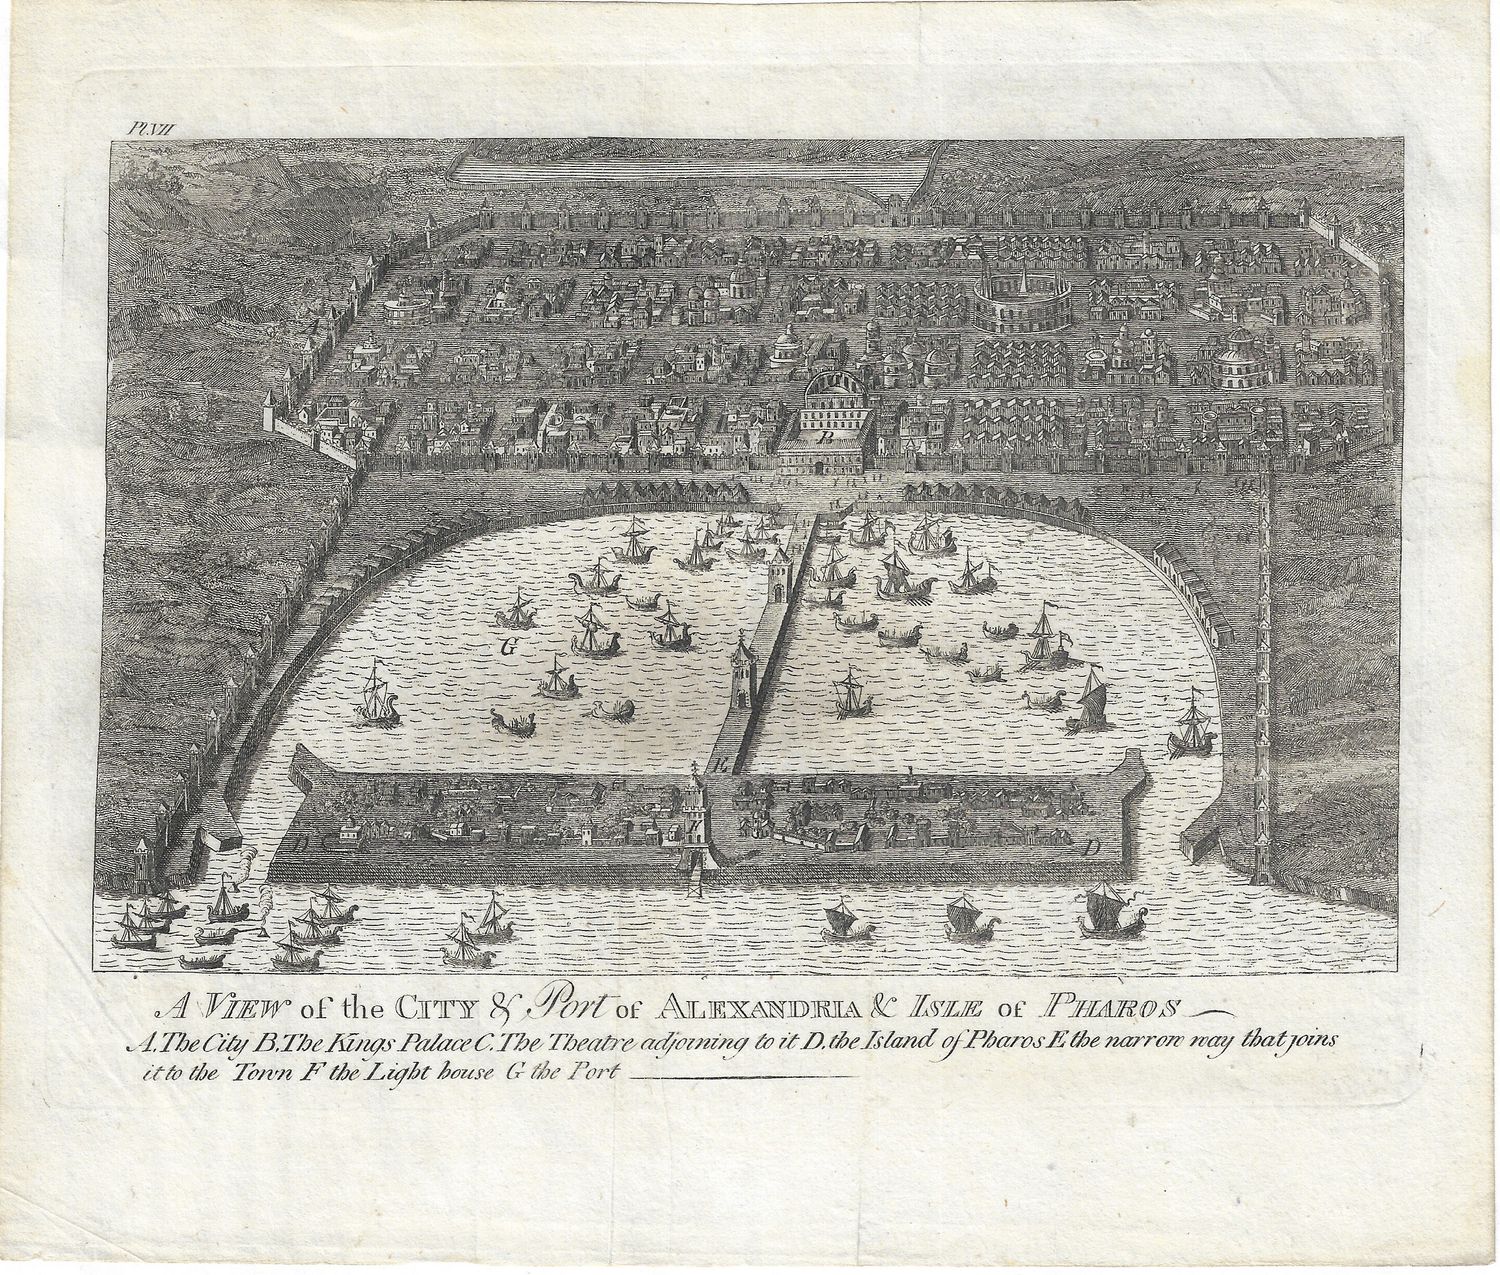 Pl.VII
A
B
G
E
F
D
D
A VIEW of the CITY & Port of ALEXANDRIA & ISLE of PHAROS
A. The City B. The Kings Palace C. The Theatre adjoining to it D. the Island of Pharos E the narrow way that joins
it to the Town F the Light house G the Port